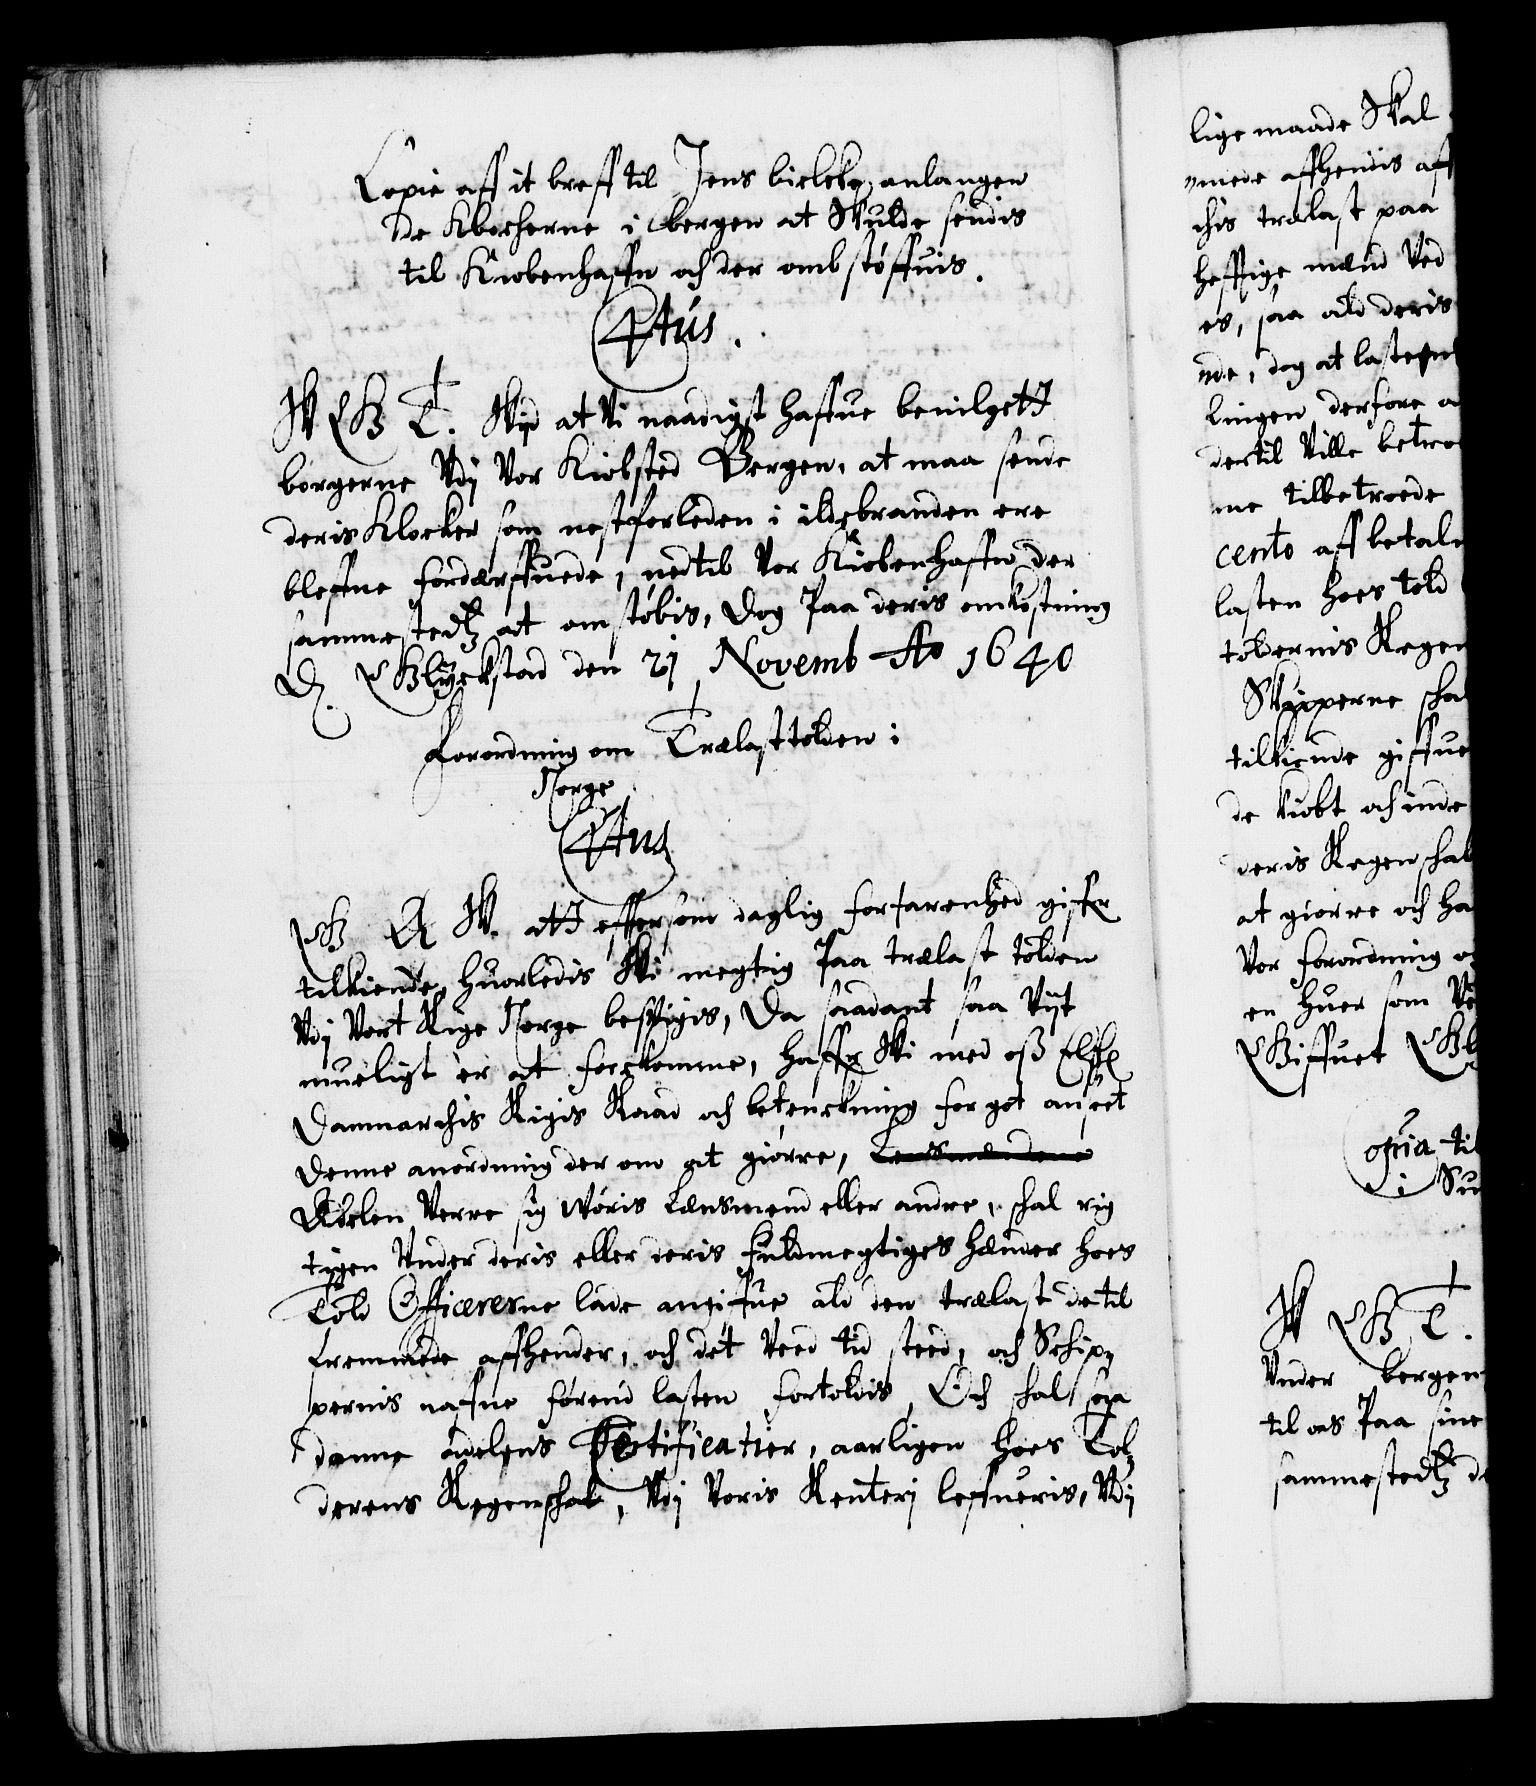 Copie aff it breff til Jens bielcke, anlangen
de klockerne i bergen at skulde sendis
til Kiøbenhaffn och der omb støffuis.
C4tus.
W G T. Wid at Vi naadigst haffue beuilgett
borgerne Vdj Vor Kiøbsted Bergen, at maa sende
deris Klocker som nest forleden i ildebranden ere
bleffne fordærffuede, ned til Vor Kiøbenhaffn der
sammestedtz at omstøbis, Dog Paa deris omkostning
D. Glyckstad den 21 Novemb Ao 1640
Forordning om Trælasttolden i
Norge
C4tus
G A W. att effersom daglig forfarenhed giffer
tilkiende, huorledis Wi megtig Paa trælast tolden
Vdj Vort Rige Norge besuigis, Da saadant saa Vijt
mueligt er at forekomme, haffer Wi med oß Elskel
Danmarchis Rigis Raad och betenckning for got anseet
denne anordning der om at giørre, Lensmændene
Adelen Verre sig Woris Lænsmend eller andre, skal rig
tigen Vnder deris eller deris fuldmegtiges hænder hoes
Told Officererne lade angiffue ald den trælast de til
fremmede affhender, och det Veed tid sted, och Schip,
pernis nafne førend lasten fortoldis, Och skal saa
danne adelens Certificatier, aarligen hoes Tol,
derens Regenschab, Vdj Voris Renterj leffueris, Vdj
lige maade skal
mede affhendis aff
chis trælast paa
hefftige mænd Ved
es, saa ald deris
nde, dog at lasten
lingen derfore a
dertil Ville betro
me tilbetroede
cento aff betale
lasten hoes told
toldernis Regen
Skipperne skal
tilkiende giffue
de kiøbt och inde
deris Regenschab
at giørre och ha
Vor forordning o
en huer som Ve
Giffuet Gl
opia til
i Su
W G T.
Vnder bergen
til os Paa sine
sammestedtz de